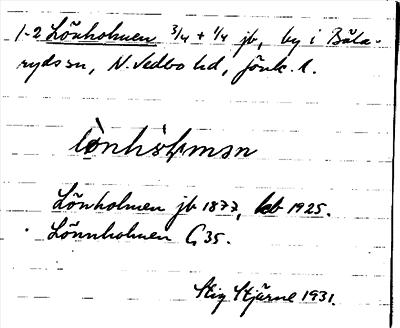 1-2 Lönholmen 3/4 + 1/4 jb, by i Bäla-
ryds sn, N. Vedbo hd, Jönk. l.
lònhòlmən
Lönholmen jb 1877, kb 1925.
Lönnholmen G 35.
Stig Stjärne 1931.